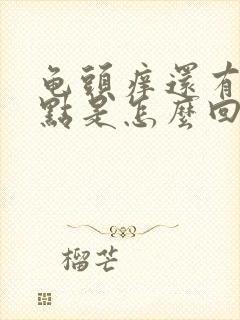 龟頭痒還有
點是怎麼回
榴芒